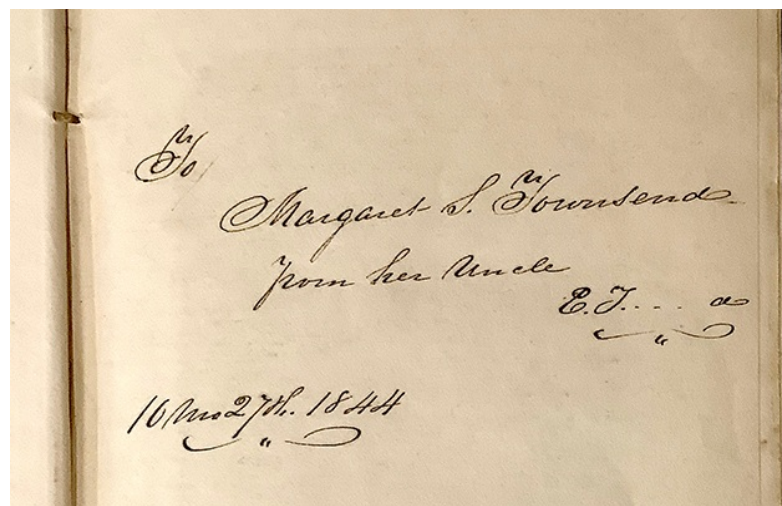 To
Margaret S. Townsend
from her Uncle
E. T. .... d
10 Mo 27th. 1844